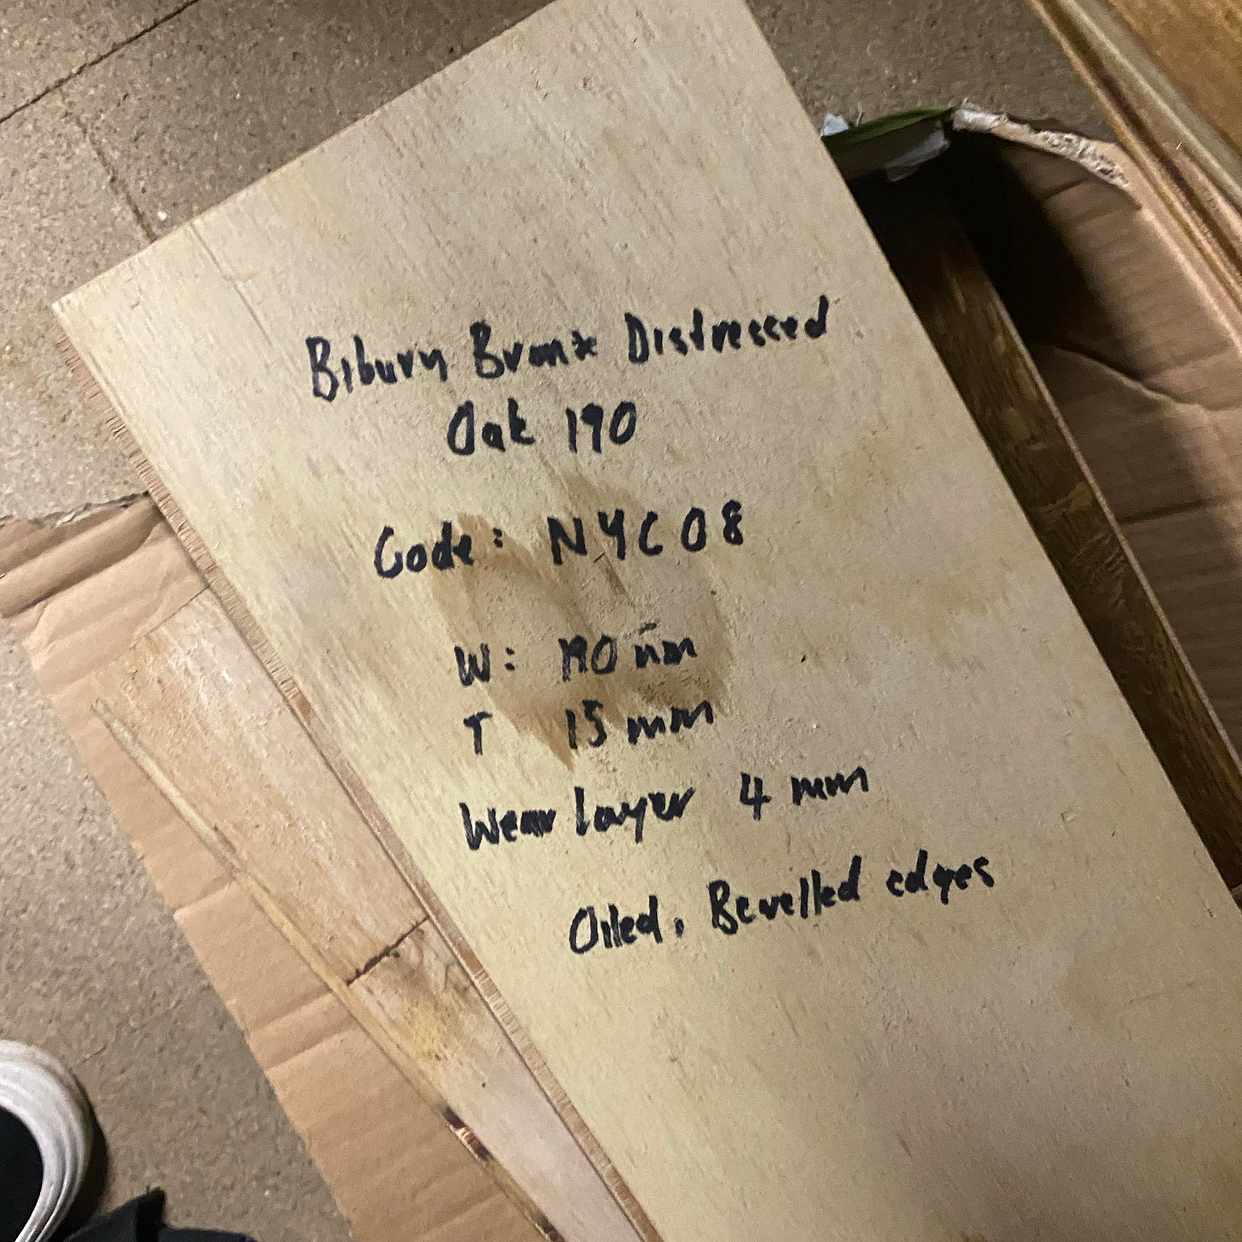 Bibury Bronze Distressed
Oak 190
Code: NYC08
W: 190 mm
T 15 mm
Wear layer 4 mm
Oiled, Bevelled edges